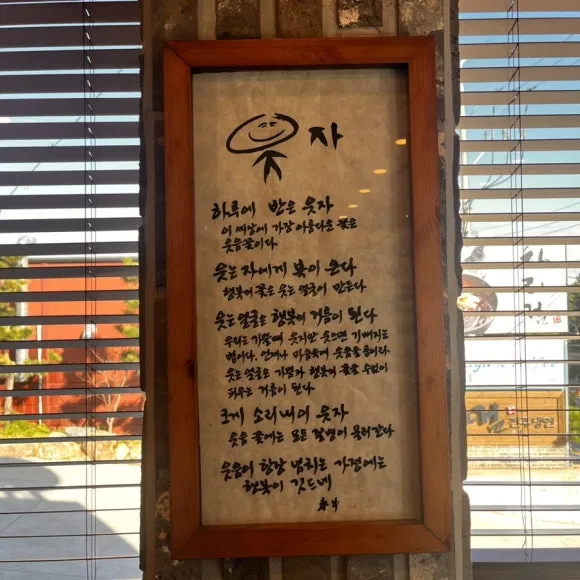 웃자
하루에 반은 웃자
이 세상에 가장 아름다운 꽃은
웃음꽃이다.
웃는 자에게 복이 온다
행복이 꽃은 웃는 얼굴이 만든다
웃는 얼굴은 행복이 거름이 된다
우리는 기쁠때 웃지만 웃으면 기뻐지는
법이다. 언제나 마음속에 웃음을
웃는 얼굴은 가정과 행복이 꽃을 수없이
피우는 거름이 된다
크게 소리내어 웃자
웃음 꽃에는 모든 질병이 물러간다
웃음이 항상 넘치는 가정에는
행복이 깃드네